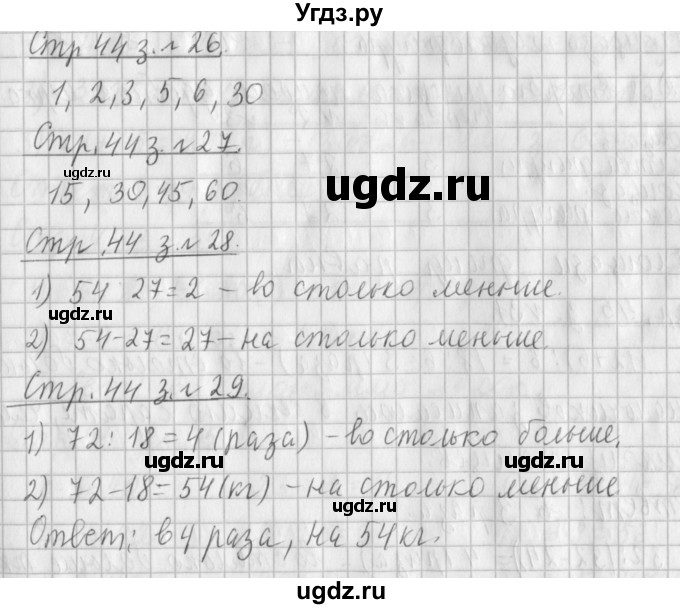 Угдз.ру
Стр 44 з. № 26.
1, 2, 3, 5, 6, 30
Стр. 44 з. № 27.
ugdz.ru
ugdz.ru
15, 30, 45, 60.
Стр. 44 з. № 28.
1) 54 27 = 2 – во столько меньше.
ugdz.ru
2) 54 - 27 = 27 – на столько меньше.
Стр. 44 з. № 29.
1) 72 : 18 = 4 (раза) – во столько больше,
ugdz.ru
ugdz.ru
2) 72 – 18 = 54 (кг) – на столько меньше.
Ответ: в 4 раза, на 54 кг.
ugdz.ru